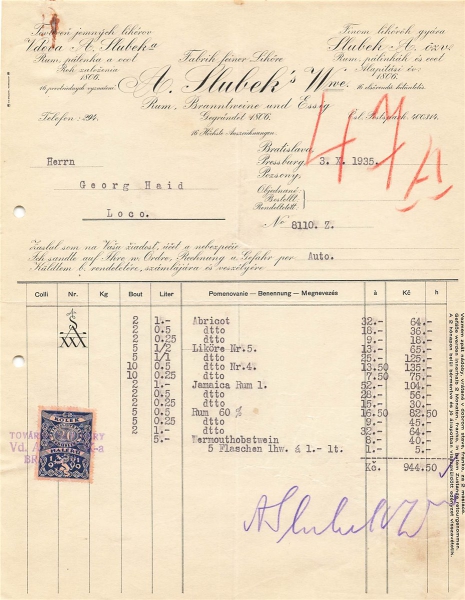 Továreň jemných likérov
Vdova A. Slubeka
Rum, pálenka a ocot
Rok založenia
1806.
16 prvotriednych vyznačení
Telefon: 294.
Fabrik feiner Liköre
A. Slubek's Wwe.
Rum, Branntweine und Essig
Gegründet 1806.
16 Höchste Auszeichnungen
Finom likőrök gyára
Slubek A. özv.
Rum, pálinkák és ecet
Alapítási év:
1806.
16 elsőrendű kitüntetés.
47A
Bratislava
Pressburg 3. X. 1935.
Pozsony,
Herrn
Georg Haid
Loco.
Objednané
Bestellt
Rendeltetett
No 8110. Z.
Zaslal som na Vašu žiadosť, účet a nebezpečie
Ich sandte auf Ihre w. Ordre, Rechnung u. Gefahr per Auto.
Küldtem b. rendeletére, számlájára és veszélyére
Colli Nr. Kg Bout Liter Pomenovanie – Benennung – Megnevezés à Kč h
2 1.- Abricot 32.- 64.-
2 0.5 dtto 18.- 36.-
2 0.25 dtto 9.- 18.-
5 1/2 Liköre Nr.5. 13.- 65.-
5 1/1 dtto 25.- 125.-
10 0.5 dtto Nr.4. 13.50 135.-
10 0.25 dtto 7.50 75.-
2 1.- Jamaica Rum 1. 52.- 104.-
2 0.5 dtto 28.- 56.-
2 0.25 dtto 15.- 30.-
5 0.5 Rum 60 % 16.50 82.50
5 0.25 dtto 9.- 45.-
2 1.- dtto 32.- 64.-
5.- Wermouthobstwein 8.- 40.-
5 Flaschen lhw. á 1.- lt. 1.- 5.-
Kč. 944.50